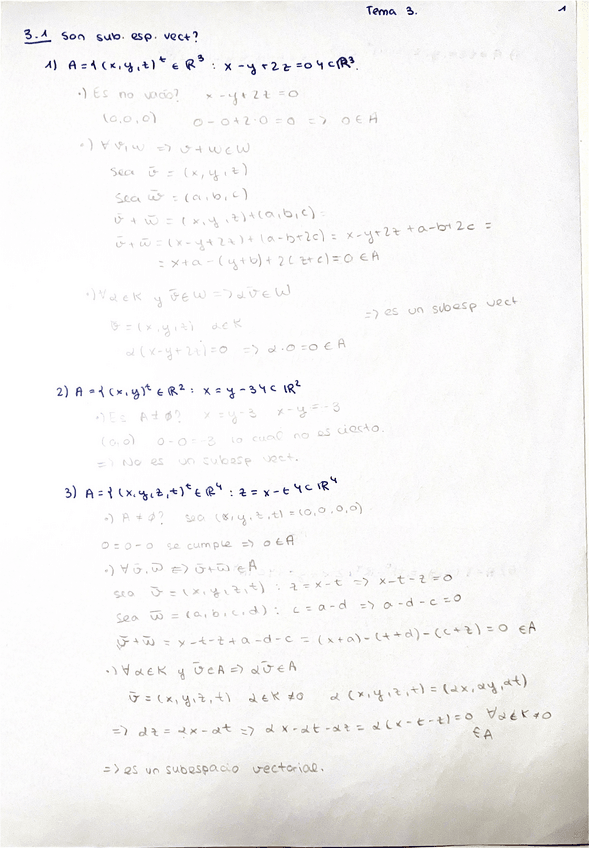 Tema 3. 1
3.1 Son sub. esp. vect?
1) A = {(x,y,z)ᵗ ∈ ℝ³ : x-y+2z=0} ⊂ ℝ³.
·) Es no vacío? x-y+2z=0
(0,0,0) 0-0+2·0=0 => 0∈A
·) ∀ v,w => v+w∈W
Sea v̄ = (x,y,z)
Sea w̄ = (a,b,c)
v̄ + w̄ = (x,y,z)+(a,b,c) =
v̄+w̄ = (x-y+2z)+(a-b+2c) = x-y+2z+a-b+2c =
= x+a-(y+b)+2(z+c)=0 ∈A
·) ∀α∈K y v̄∈W => αv̄∈W
v̄ = (x,y,z) α∈K => es un subesp vect
α(x-y+2z)=0 => α·0=0∈A
2) A = {(x,y)ᵗ ∈ ℝ² : x=y-3} ⊂ ℝ²
·) Es A≠∅? x=y-3 x-y=-3
(0,0) 0-0=-3 lo cual no es cierto.
=> No es un subesp vect.
3) A = {(x,y,z,t)ᵗ ∈ ℝ⁴ : z=x-t} ⊂ ℝ⁴
·) A≠∅? sea (x,y,z,t)=(0,0,0,0)
0=0-0 se cumple => 0∈A
·) ∀ v̄,w̄ => v̄+w̄∈A
sea v̄ = (x,y,z,t) : z=x-t => x-t-z=0
Sea w̄ = (a,b,c,d) : c=a-d => a-d-c=0
v̄+w̄ = x-t-z+a-d-c = (x+a)-(t+d)-(c+z)=0 ∈A
·) ∀α∈K y v̄∈A => αv̄∈A
v̄ = (x,y,z,t) α∈K≠0 α(x,y,z,t)=(αx,αy,αt)
=> αz=αx-αt => αx-αt-αz = α(x-t-z)=0 ∀α∈K≠0
∈A
=> es un subespacio vectorial.